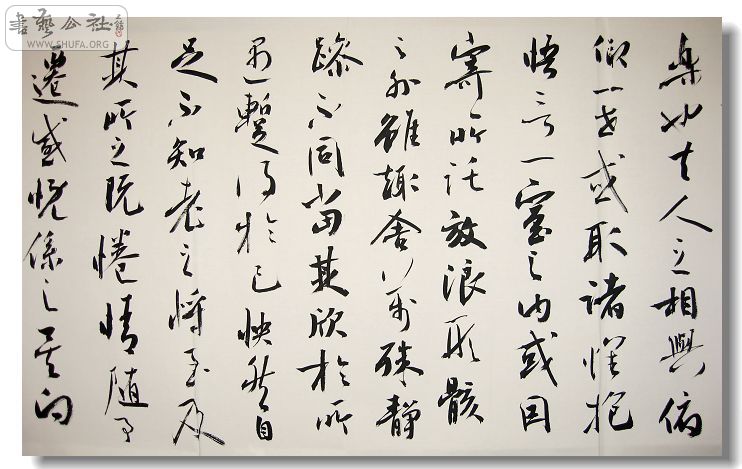 書藝公社
WWW.SHUFA.ORG
樂也夫人之相與俯
仰一世或取諸懷抱
悟言一室之內或因
寄所託放浪形骸
之外雖趣舍萬殊靜
躁不同當其欣於所
遇暫得於己快然自
足不知老之將至及
其所之既惓情隨事
遷感慨係之矣向